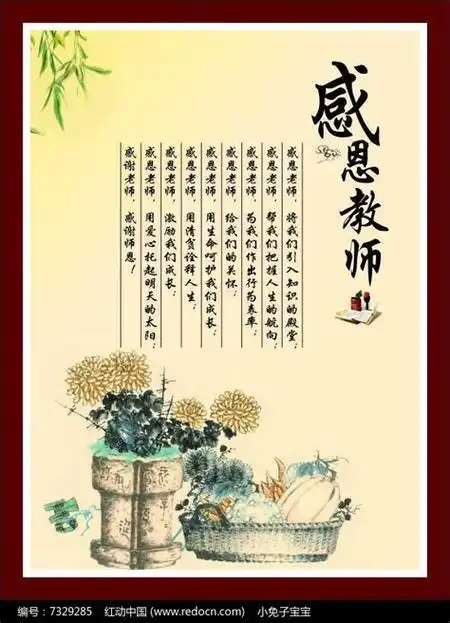 感恩教师
感恩老师，将我们引入知识的殿堂；
感恩老师，帮我们把握人生的航向；
感恩老师，为我们作出行为表率；
感恩老师，给我们的关怀；
感恩老师，用生命呵护我们成长；
感恩老师，用清贫诠释人生；
感恩老师，激励我们成长；
感恩老师，用爱心托起明天的太阳；
感谢老师，感谢师恩！
编号：7329285 红动中国 (www.redocn.com) 小兔子宝宝